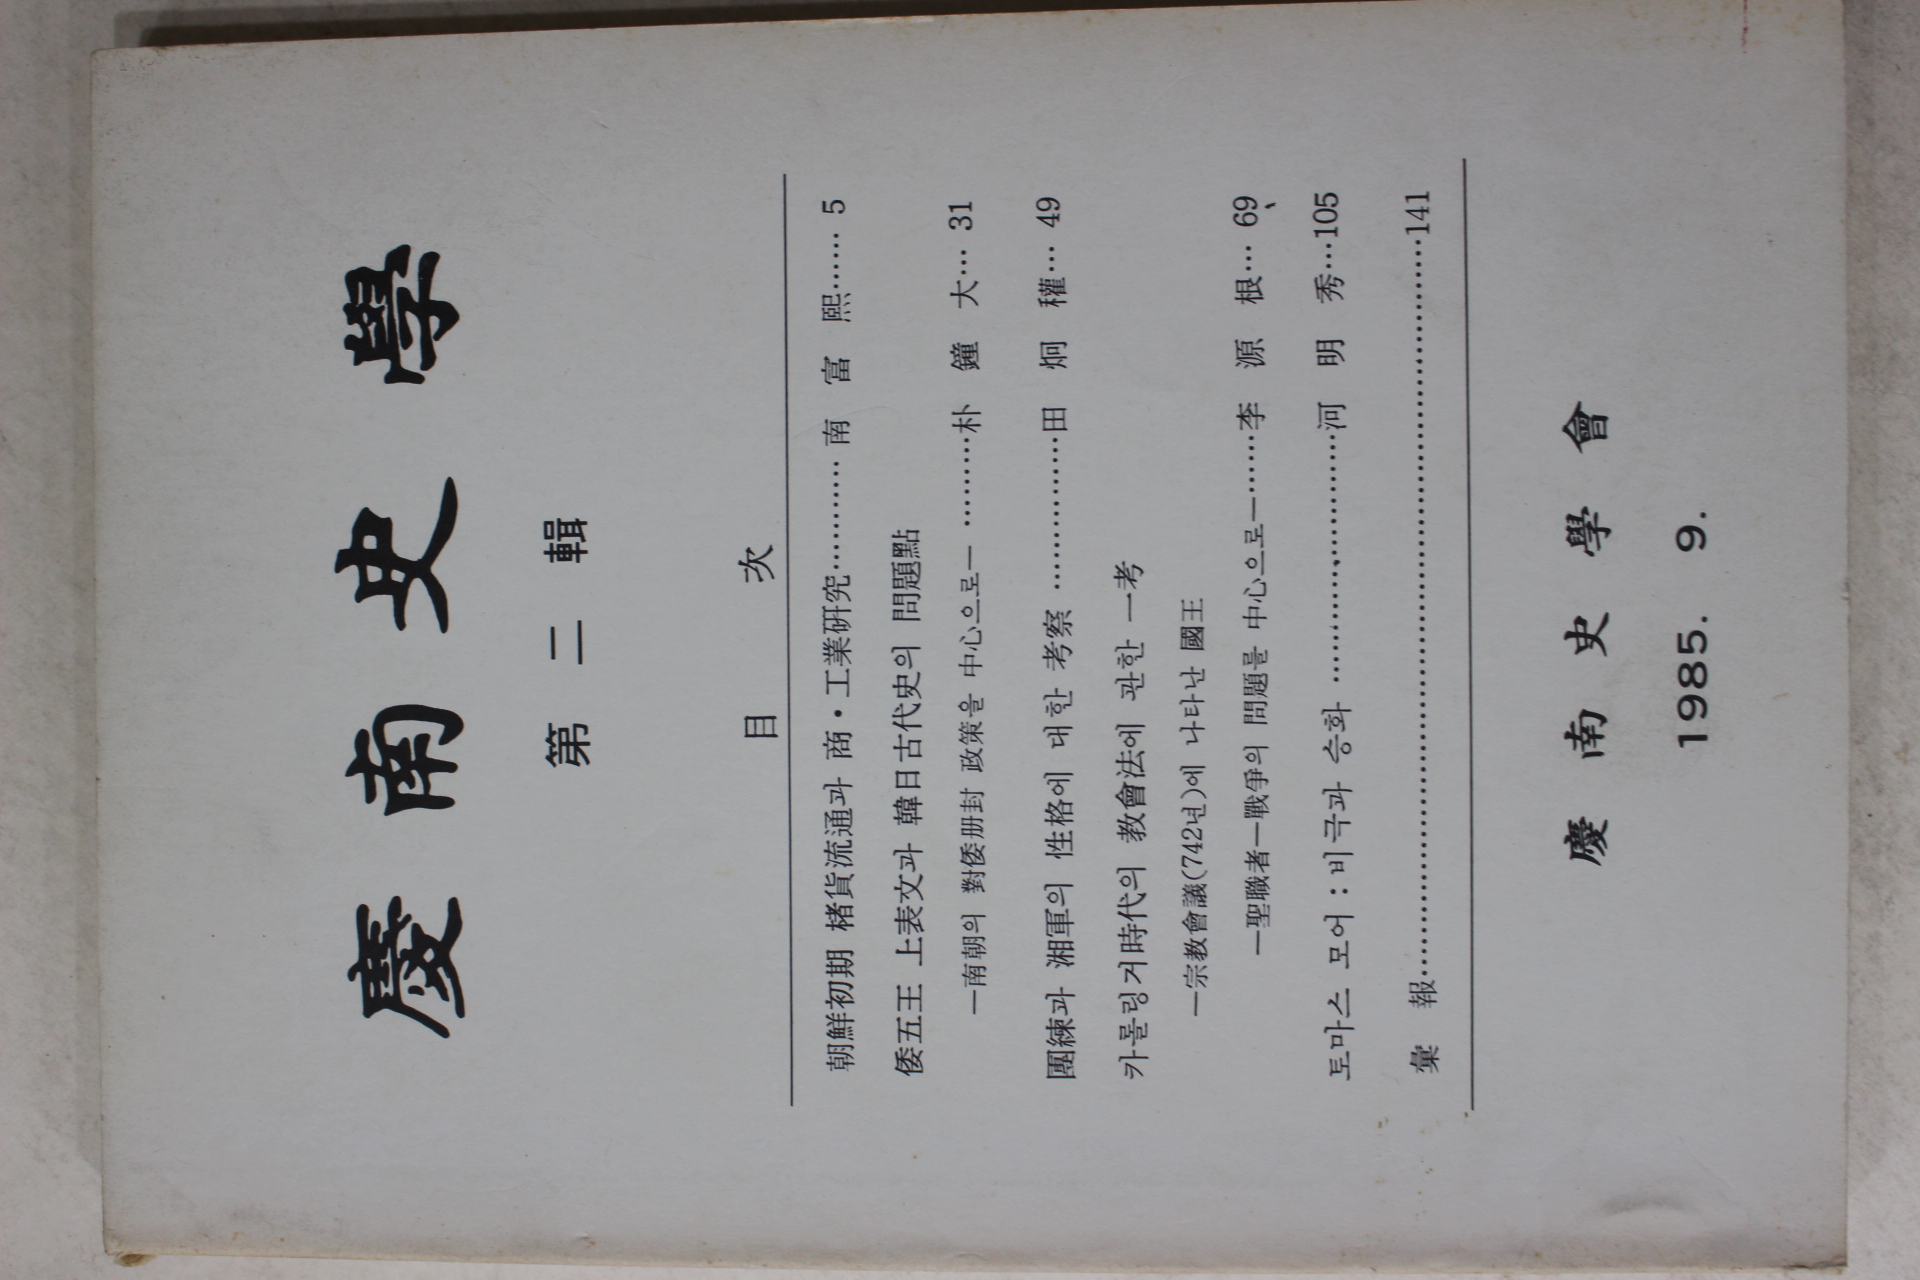 慶南史學
第二輯
目 次
朝鮮初期 楮貨流通과 商·工業硏究………… 南 富 熙…… 5
倭五王 上表文과 韓日古代史의 問題點
―南朝의 對倭册封 政策을 中心으로― ………朴 鐘 大… 31
團練과 湘軍의 性格에 대한 考察 ……………田 炯 權… 49
카롤링거時代의 敎會法에 관한 一考
―宗敎會議(742년)에 나타난 國王
―聖職者―戰爭의 問題를 中心으로―……李 源 根… 69
토마스 모어 : 비극과 승화 ……………………河 明 秀…105
彙 報……………………………………………………………141
慶南史學會
1985. 9.